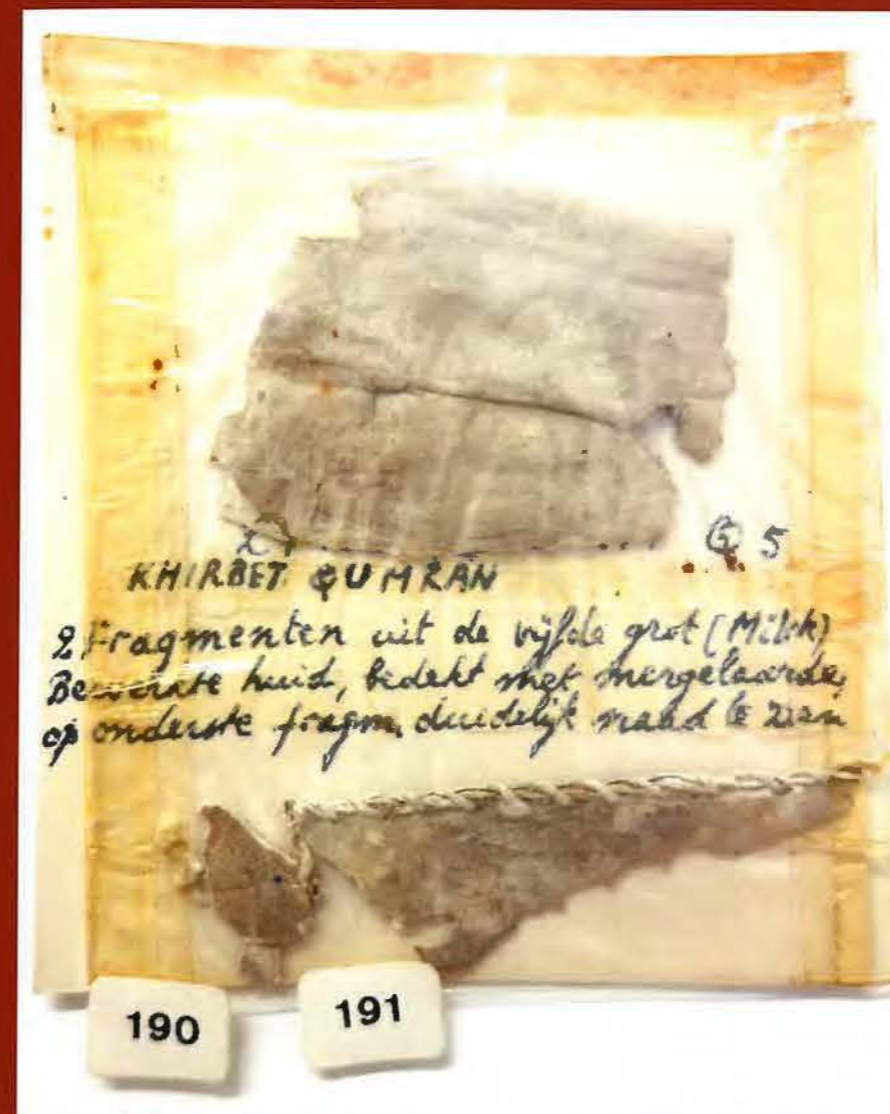 G 5
KHIRBET QUMRAN
2 Fragmenten uit de vijfde grot (Milik)
Bewerkte huid, bedekt met mergelaarde,
op onderste fragm, duidelijk naad te zien
190
191